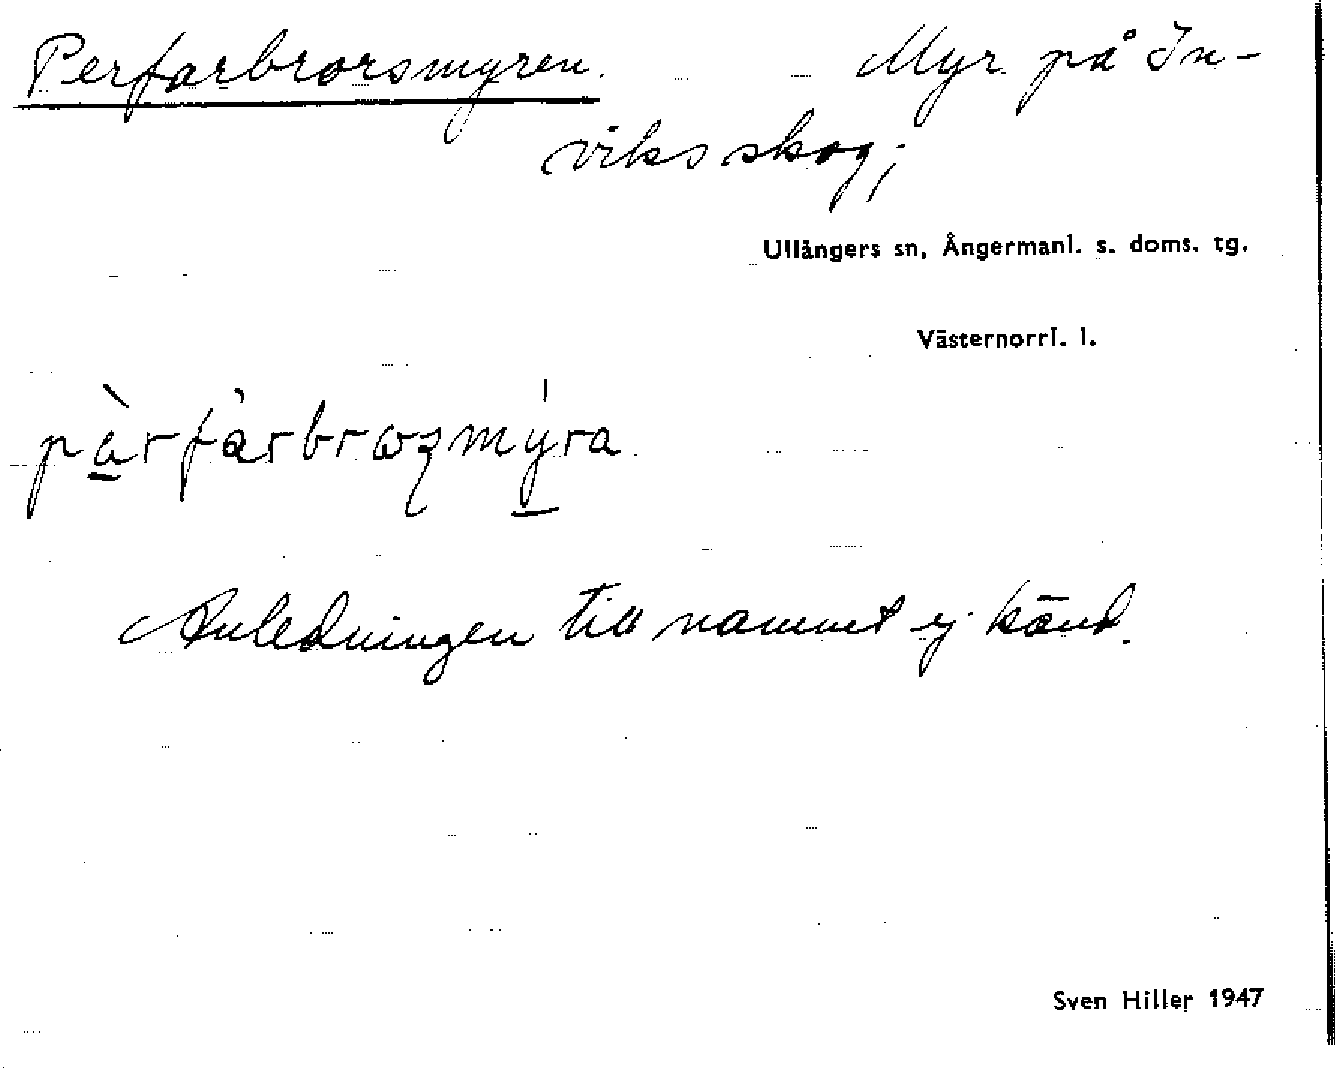 Perfarbrorsmyren. Myr på In-
viks skog;
Ullångers sn, Ångermanl. s. doms. tg.
Västernorrl. l.
pàrfàrbrꞷʂmýra
Anledningen till namnet ej känd.
Sven Hiller 1947